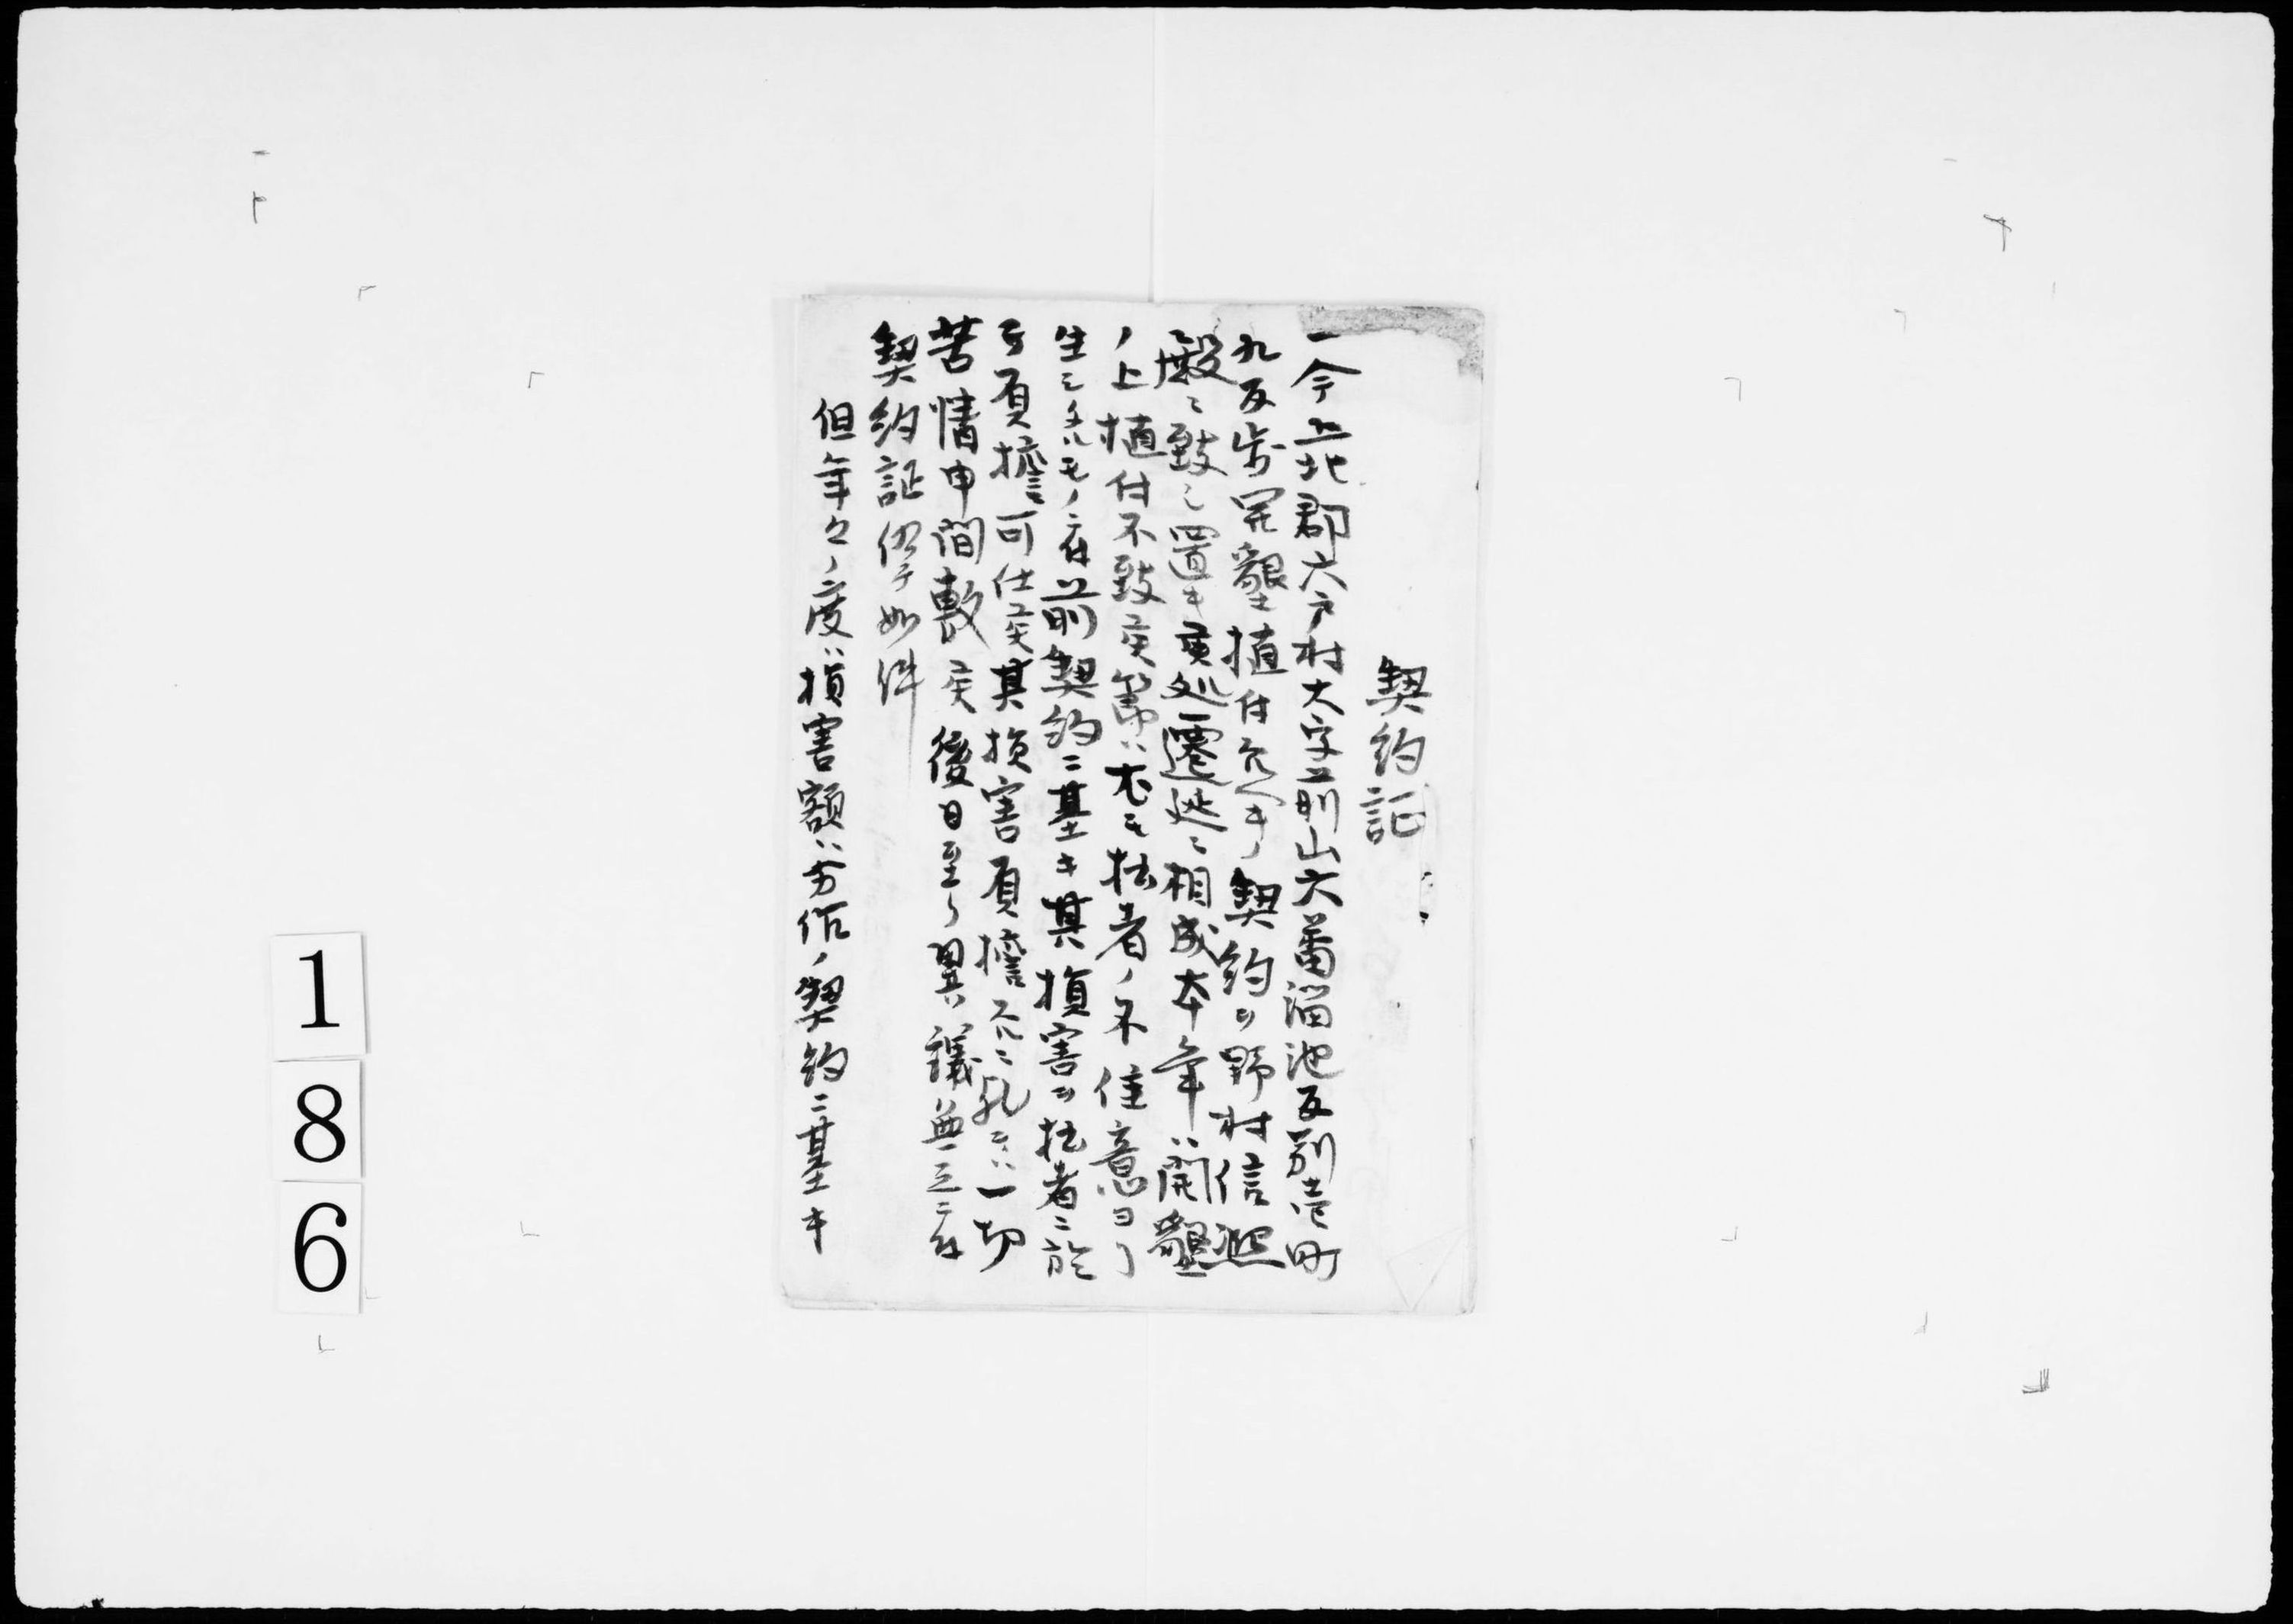 契約証
一今上北郡六戸村大字上前山六番溜池反別壱町
九反歩開墾植付 ノ契約ヲ野村信凞
殿ニ致シ置キ候処遷延ニ相成本年ハ開墾
ノ上植付不致候 ハ 拙者ノ不 意ヨリ
生シタルモノニ付前契約ニ基キ其損害ヲ拙者ニ於
テ負擔可仕候其損害負擔 ニ 一切
苦情申間敷候後日至リ異議無之 
契約証 如件
但年々ノ度ハ損害額ハ 作ノ契約ニ基キ
186